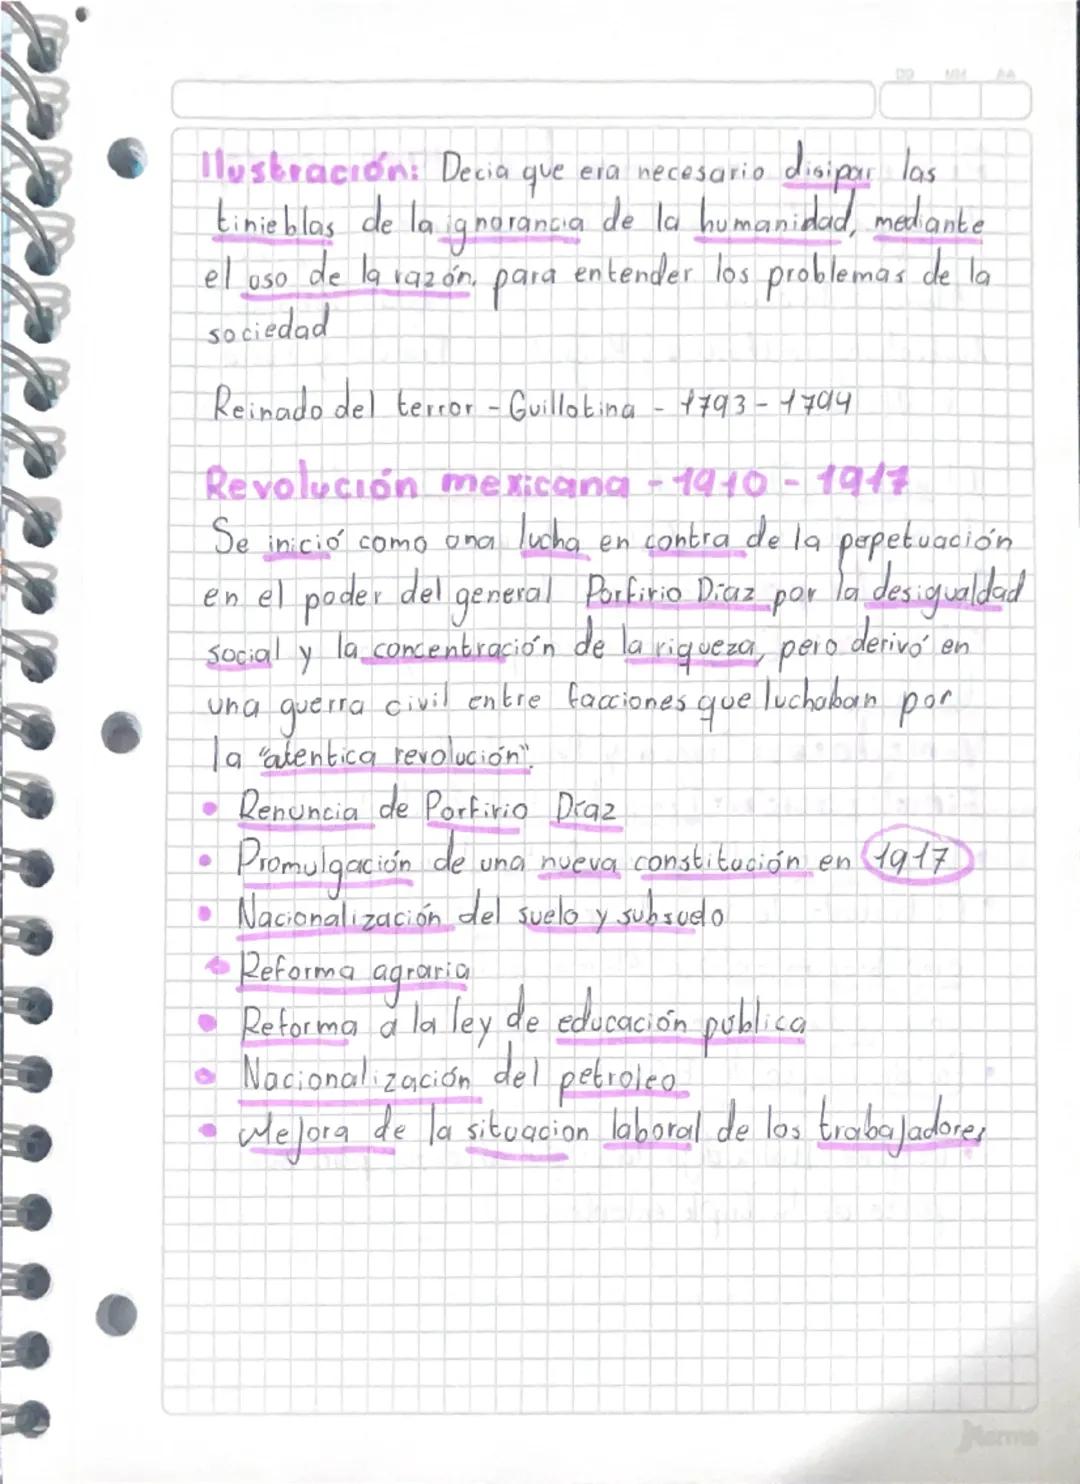 DD MM AA
Ilustración: Decia que era necesario disipar las
tinieblas de la ignorancia de la humanidad, mediante
el uso de la razón, para entender los problemas de la
sociedad
Reinado del terror - Guillotina - 1793 - 1794
Revolución mexicana - 1910 - 1917
Se inició como una lucha en contra de la perpetuación
en el poder del general Porfirio Díaz por la desigualdad
social y la concentración de la riqueza, pero derivó en
una guerra civil entre facciones que luchaban por
la "atentica revolución".
• Renuncia de Porfirio Díaz
• Promulgación de una nueva constitución en 1917
• Nacionalización del suelo y subsuelo
• Reforma agraria
• Reforma a la ley de educación pública
• Nacionalización del petroleo
• Mejora de la situacion laboral de los trabajadores
Norma